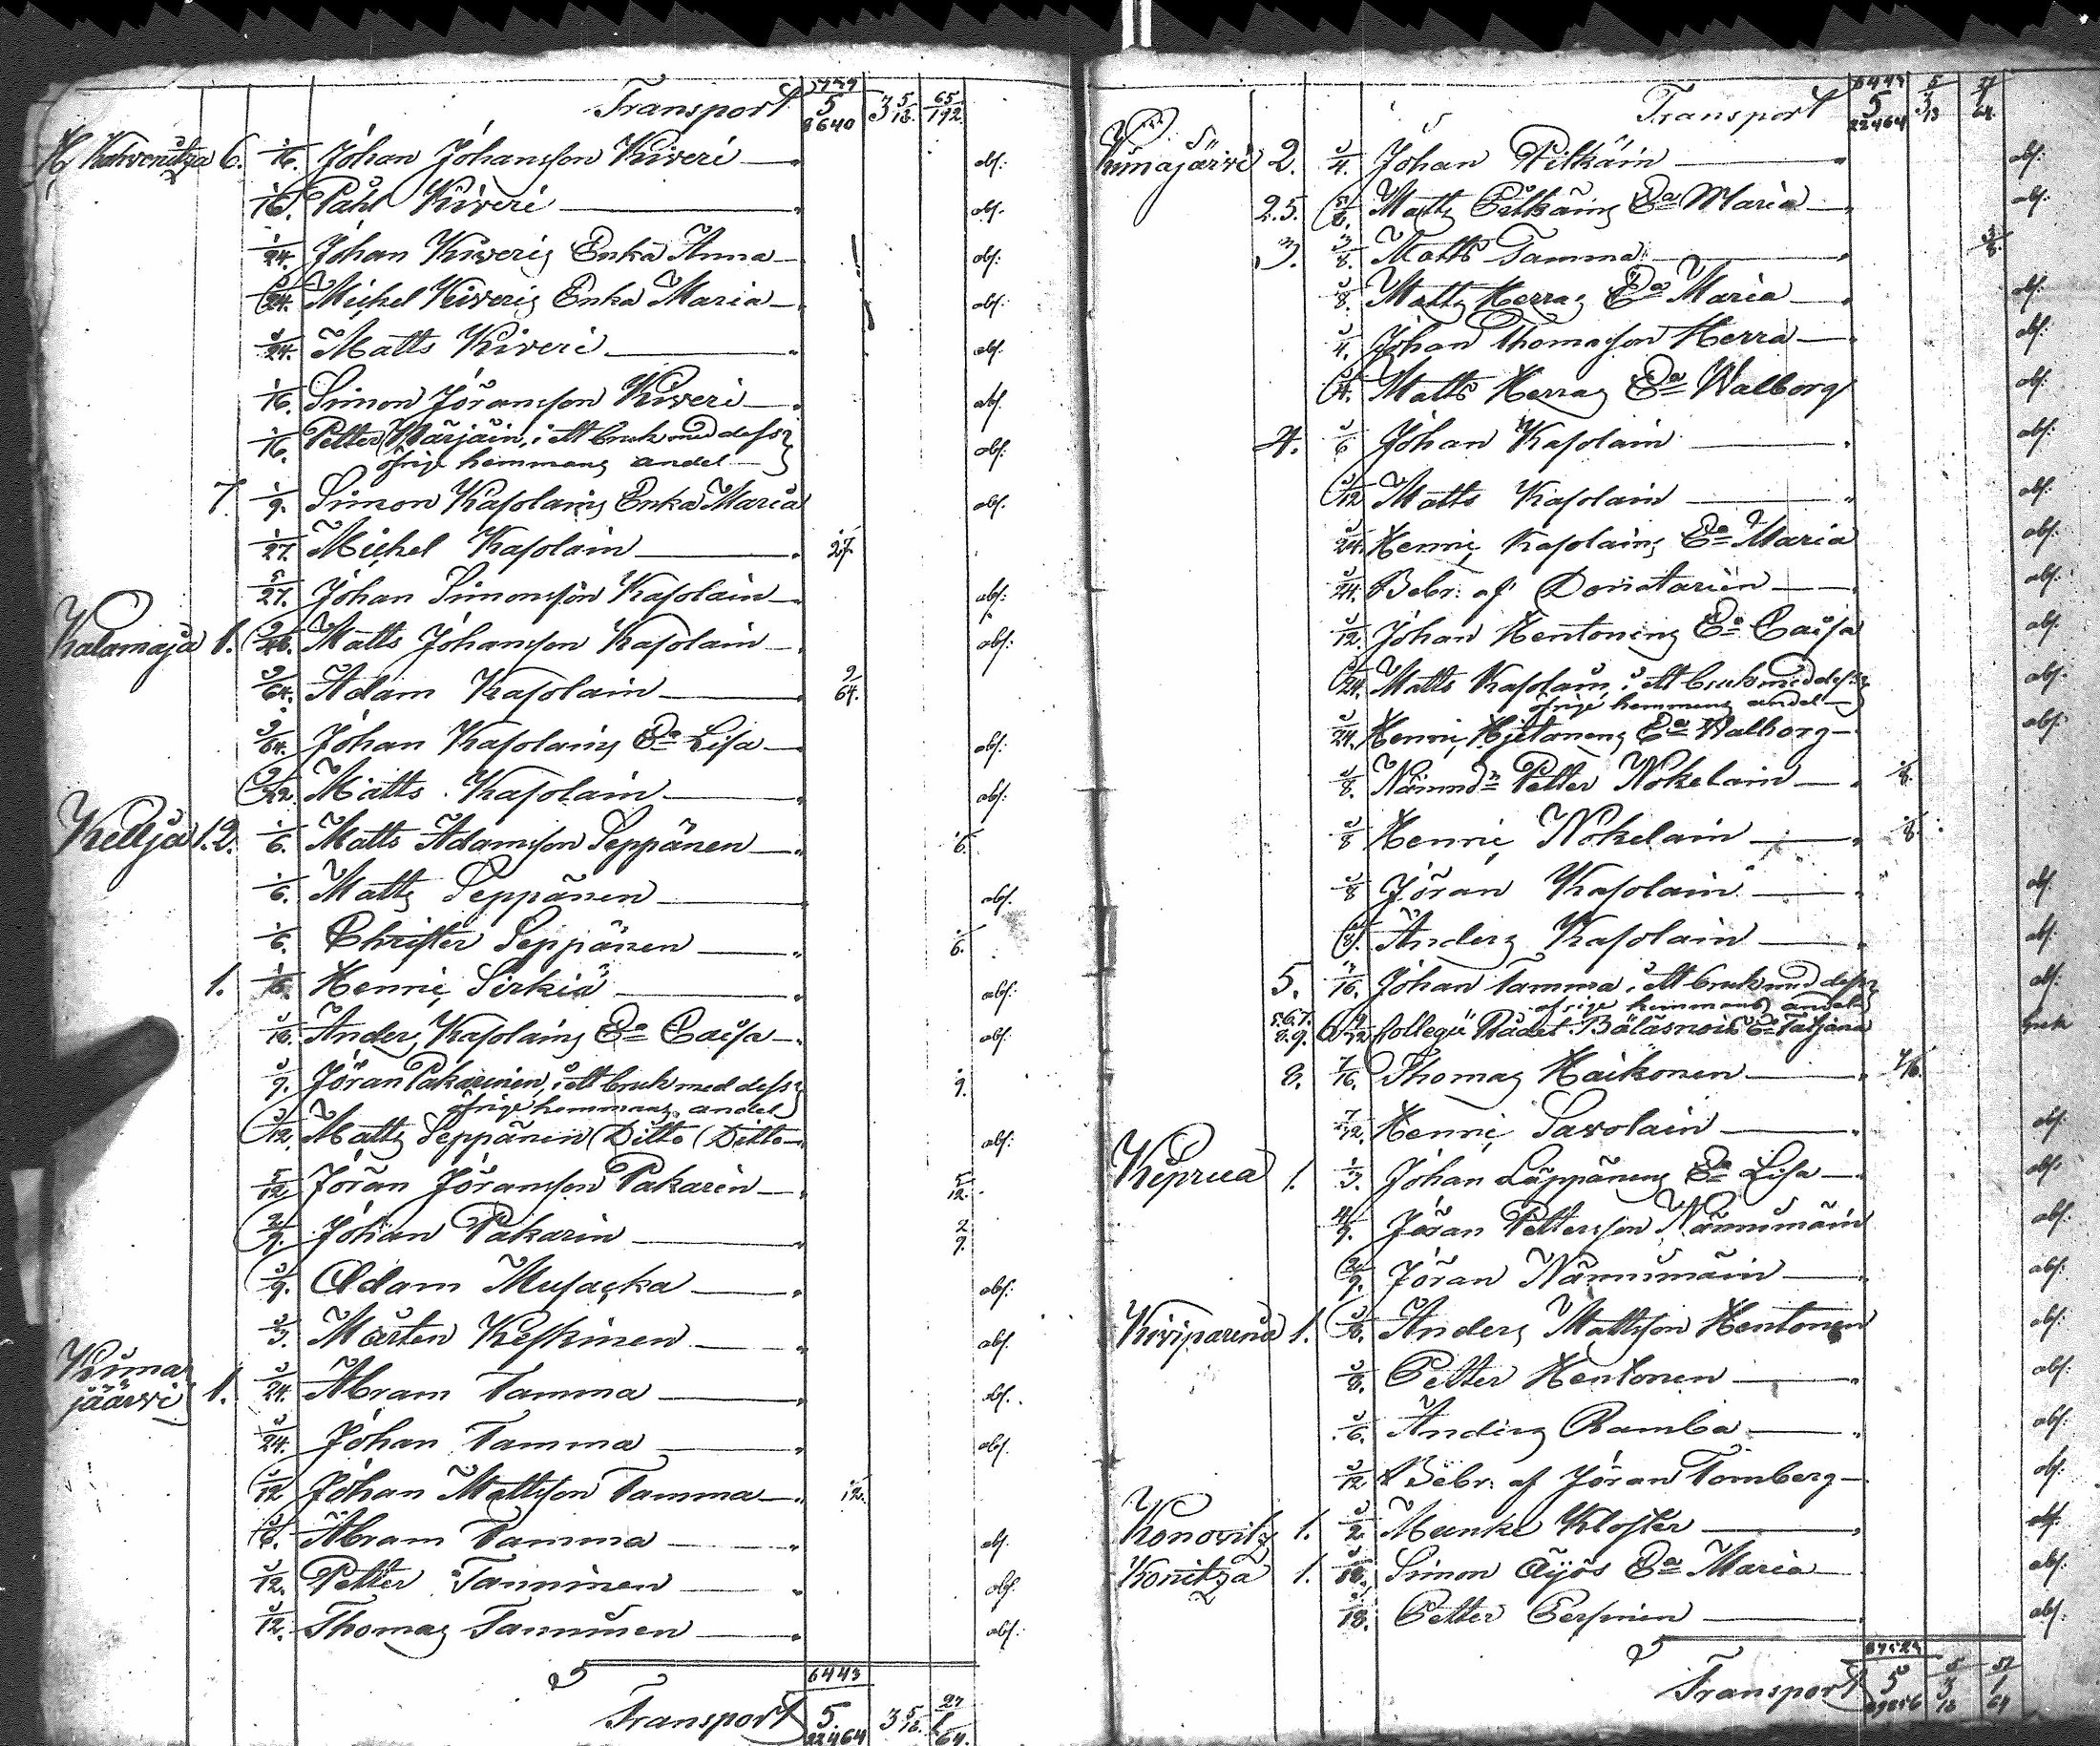 Transport 5 3 5/18. 65/192.
6. 1/16. Johan Johansson Kiveri — abs:
1/16. Påhl Kiveri — abs.
1/24. Johan Kiveris Enka Anna — abs:
1/24. Michel Kiveris Enka Maria — abs:
1/24. Matts Kiveri — abs.
1/16. Simon Jöransson Kiveri — abs.
1/16. Petter Märjäin, i ett bruk med dess
öfrige hemmans andel — abs:
7. 1/9. Simon Kasolains Enka Maria abs.
1/27. Michel Kasolain — 1/27.
5/27. Johan Simonsson Kasolain — abs:
Kalamaja 1. Matts Johansson Kasolain — abs:
9/64. Adam Kasolain — 9/64.
9/64. Johan Kasolains Ea Lisa — abs:
Matts Kasolain — abs:
Kellja 1.2. 1/6. Matts Adamsson Seppänen — 1/6.
1/6. Matts Seppänen — abs.
1/6. Christer Seppänen — 1/6.
1. Henric Sirkiä — abs:
Anders Kasolains Ea Caisa — abs:
1/9. Jöran Pakarinen, i ett bruk med dess
öfrige hemmans andel 1/9.
1/12. Matts Seppänen Ditto Ditto — abs:
5/12 Jöran Jöransson Pakarin — 5/12.
2/9. Johan Pakarin — 2/9.
1/9. Adam Musacka — abs:
1/3. Mårten Keskinen — abs.
Kuma
jäärvi 1. 1/24. Abram Tamma — abs.
1/24. Johan Tamma — abs.
1/12 Johan Mattsson Tamma — 1/12.
1/6. Abram Tamma — abs.
1/12. Petter Tamminen — abs.
1/12. Thomas Tamminen — abs:
6443
Transport 5. 3 5/18. 27/64.
22464
6443
Transport 5 3
22464
Kumajärvi 2. 1/4. Johan Pitkäin — abs:
2.5. Matts Pitkäins Ea Maria — abs:
3. 3/8. Matts Tamma — 3/8.
1/8. Matts Herras Ea Maria — abs:
1/4. Johan Thomasson Herra — abs:
1/4. Matts Herras Ea Walborg abs:
4. 1/6 Johan Kasolain — abs:
1/12 Matts Kasolain — abs:
1/24. Henric Kasolains Ea Maria abs:
1/24. Bebr: af Donatarien — abs:
1/12. Johan Hentonens Ea Caisa abs:
1/24. Matts Kasolain, i ett bruk med dess
öfrige hemmans andel — abs.
1/24. Henric Hjetanens Ea Walborg — abs:
1/8. Nämmdn Petter Nokelain — 1/8.
1/8 Henric Nokelain — 1/8.
1/8 Jöran Kasolain — abs.
1/8. Anders Kasolain — abs:
5. 3/16. Johan Tamma, i ett bruk med dess
öfrige hemmans andel abs:
5.6.7.
8.9. Collegii Rådet Ea Tatjana
8. 7/16. Thomas Haikonen — 7/16.
7/12. Henric Savolain — abs.
Keprua 1. 1/3. Johan Läppänens Ea Lisa — abs.
4/9. Jöran Pettersson Nännimäin abs:
2/9. Jöran Nännimäin — abs:
Kiviparena 1. Anders Mattsson Hentonen abs:
1/8. Petter Hentonen — abs:
1/6. Anders Ramba — abs:
1/12 Bebr: af Jöran Tomberg — abs.
Konovitz 1. 1/2. Munke Kloster — abs.
Konitza 1. Simon Äyjös Ea Maria — abs:
1/18. Petter — abs.
Transport 5 3